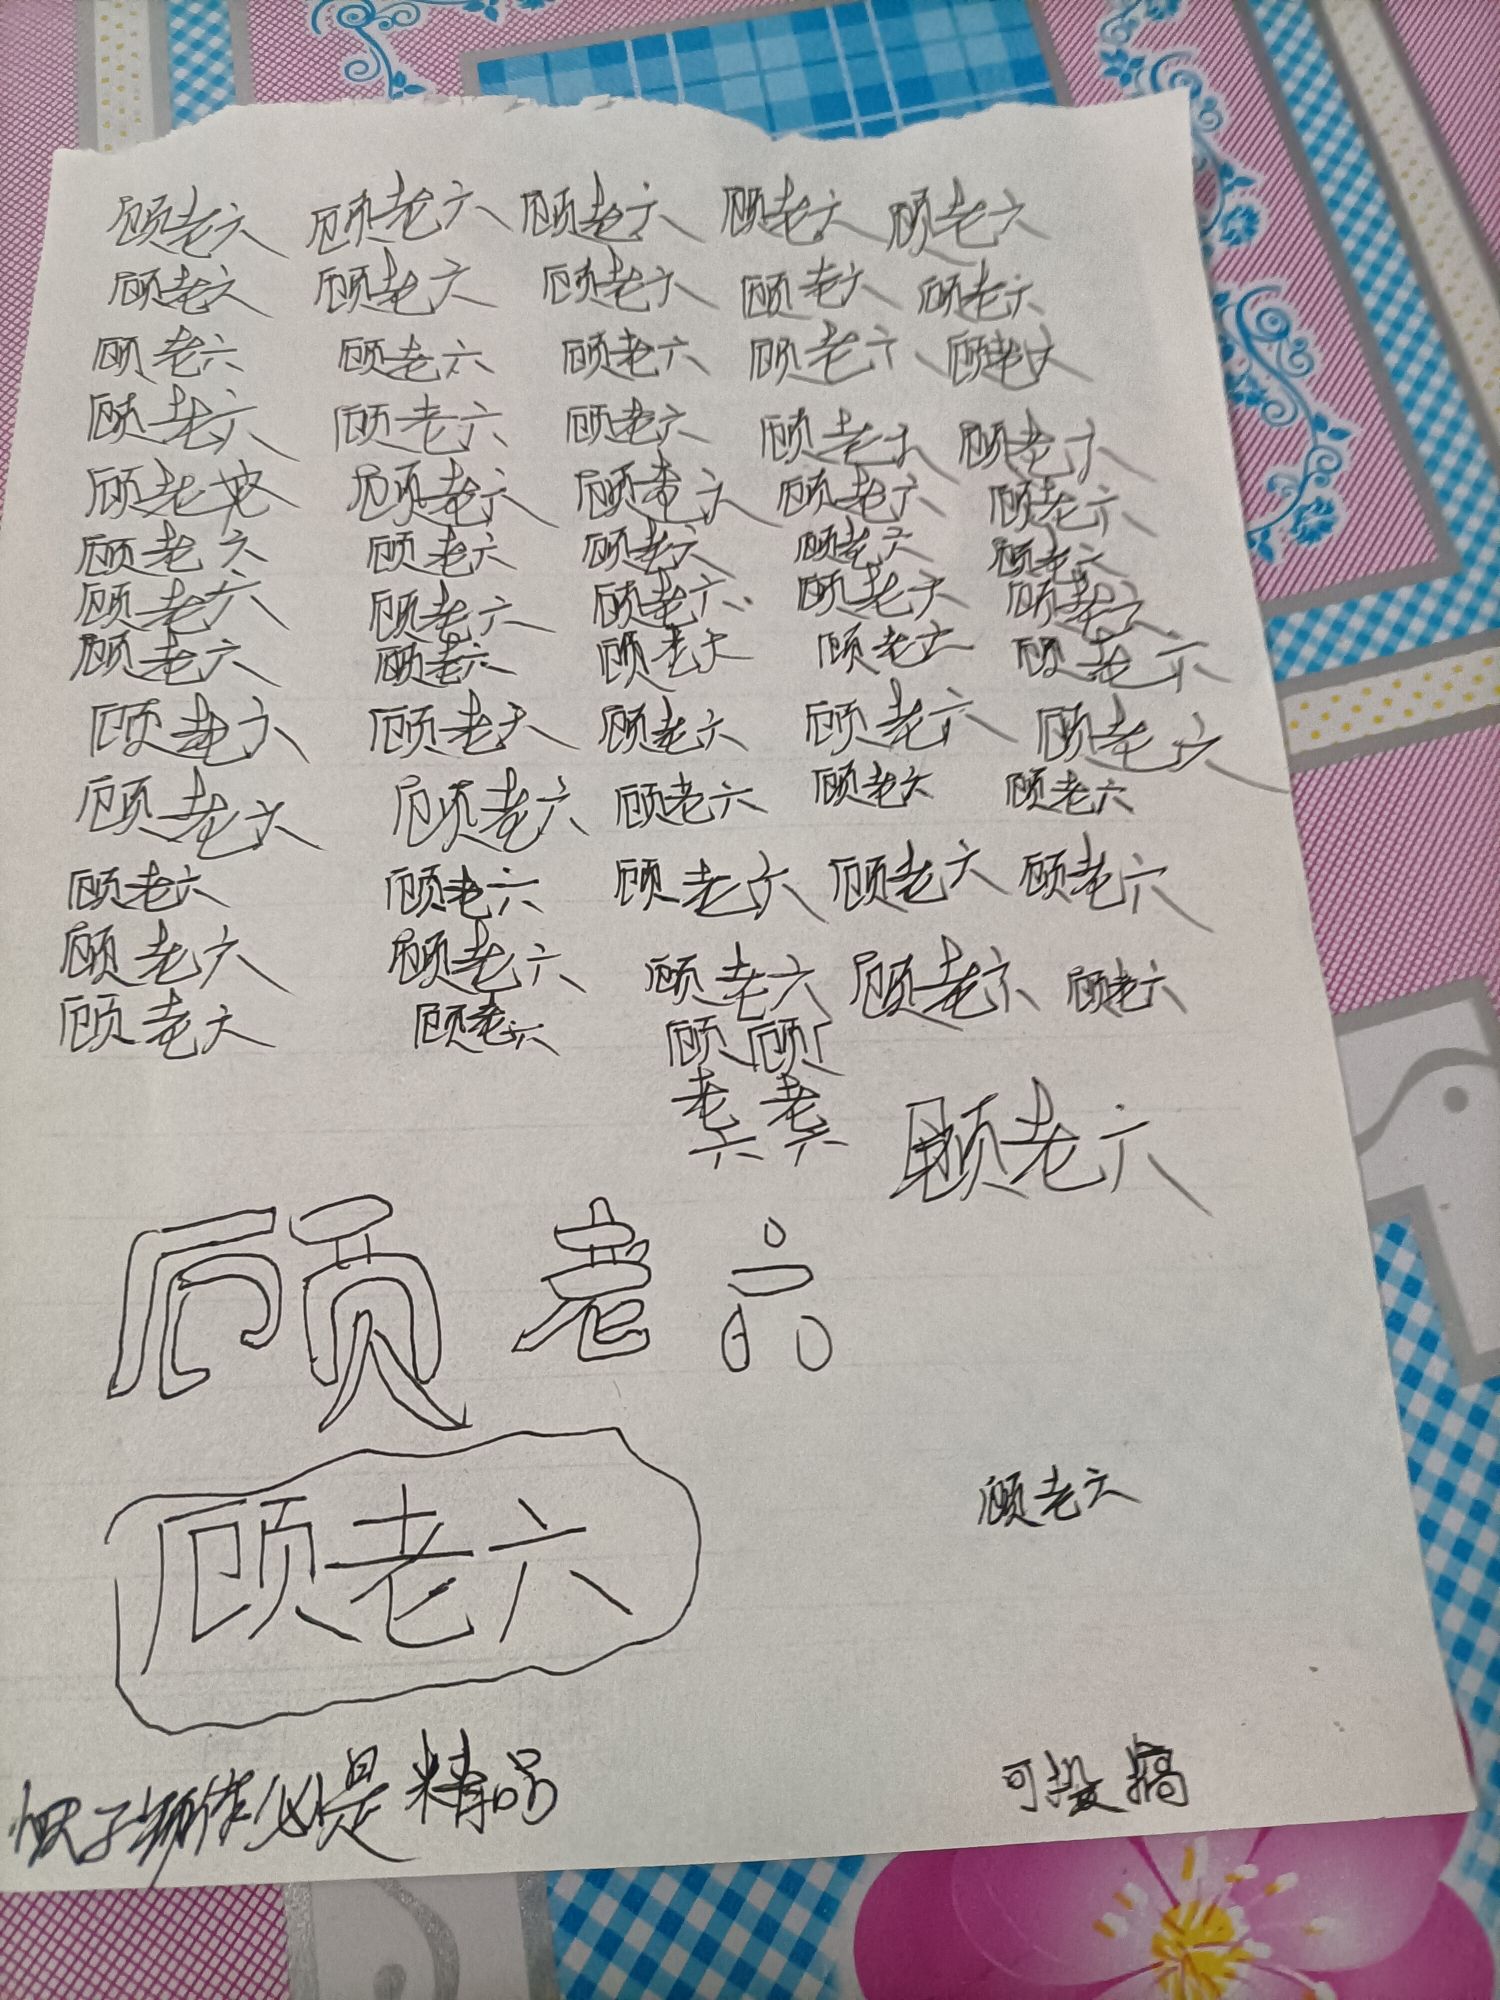 顾老六 顾老六 顾老六 顾老六 顾老六
顾老六 顾老六 顾老六 顾老六 顾老六
顾老六 顾老六 顾老六 顾老六 顾老六
顾老六 顾老六 顾老六 顾老六 顾老六
顾老 顾老六 顾老六 顾老六 顾老六
顾老六 顾老六 顾老六 顾老六 顾老六
顾老六 顾老六 顾老六 顾老六 顾老六
顾老六 顾老六 顾老六 顾老六 顾老六
顾老六 顾老六 顾老六 顾老六 顾老六
顾老六 顾老六 顾老六 顾老六 顾老六
顾老六 顾老六 顾老六 顾老六 顾老六
顾老六 顾老六 顾老六 顾老六 顾老六
顾老六 顾老六 顾 顾
老 老
六 六 顾老六
顾老六
顾老六
顾老六
子 作必是精品
可投搞